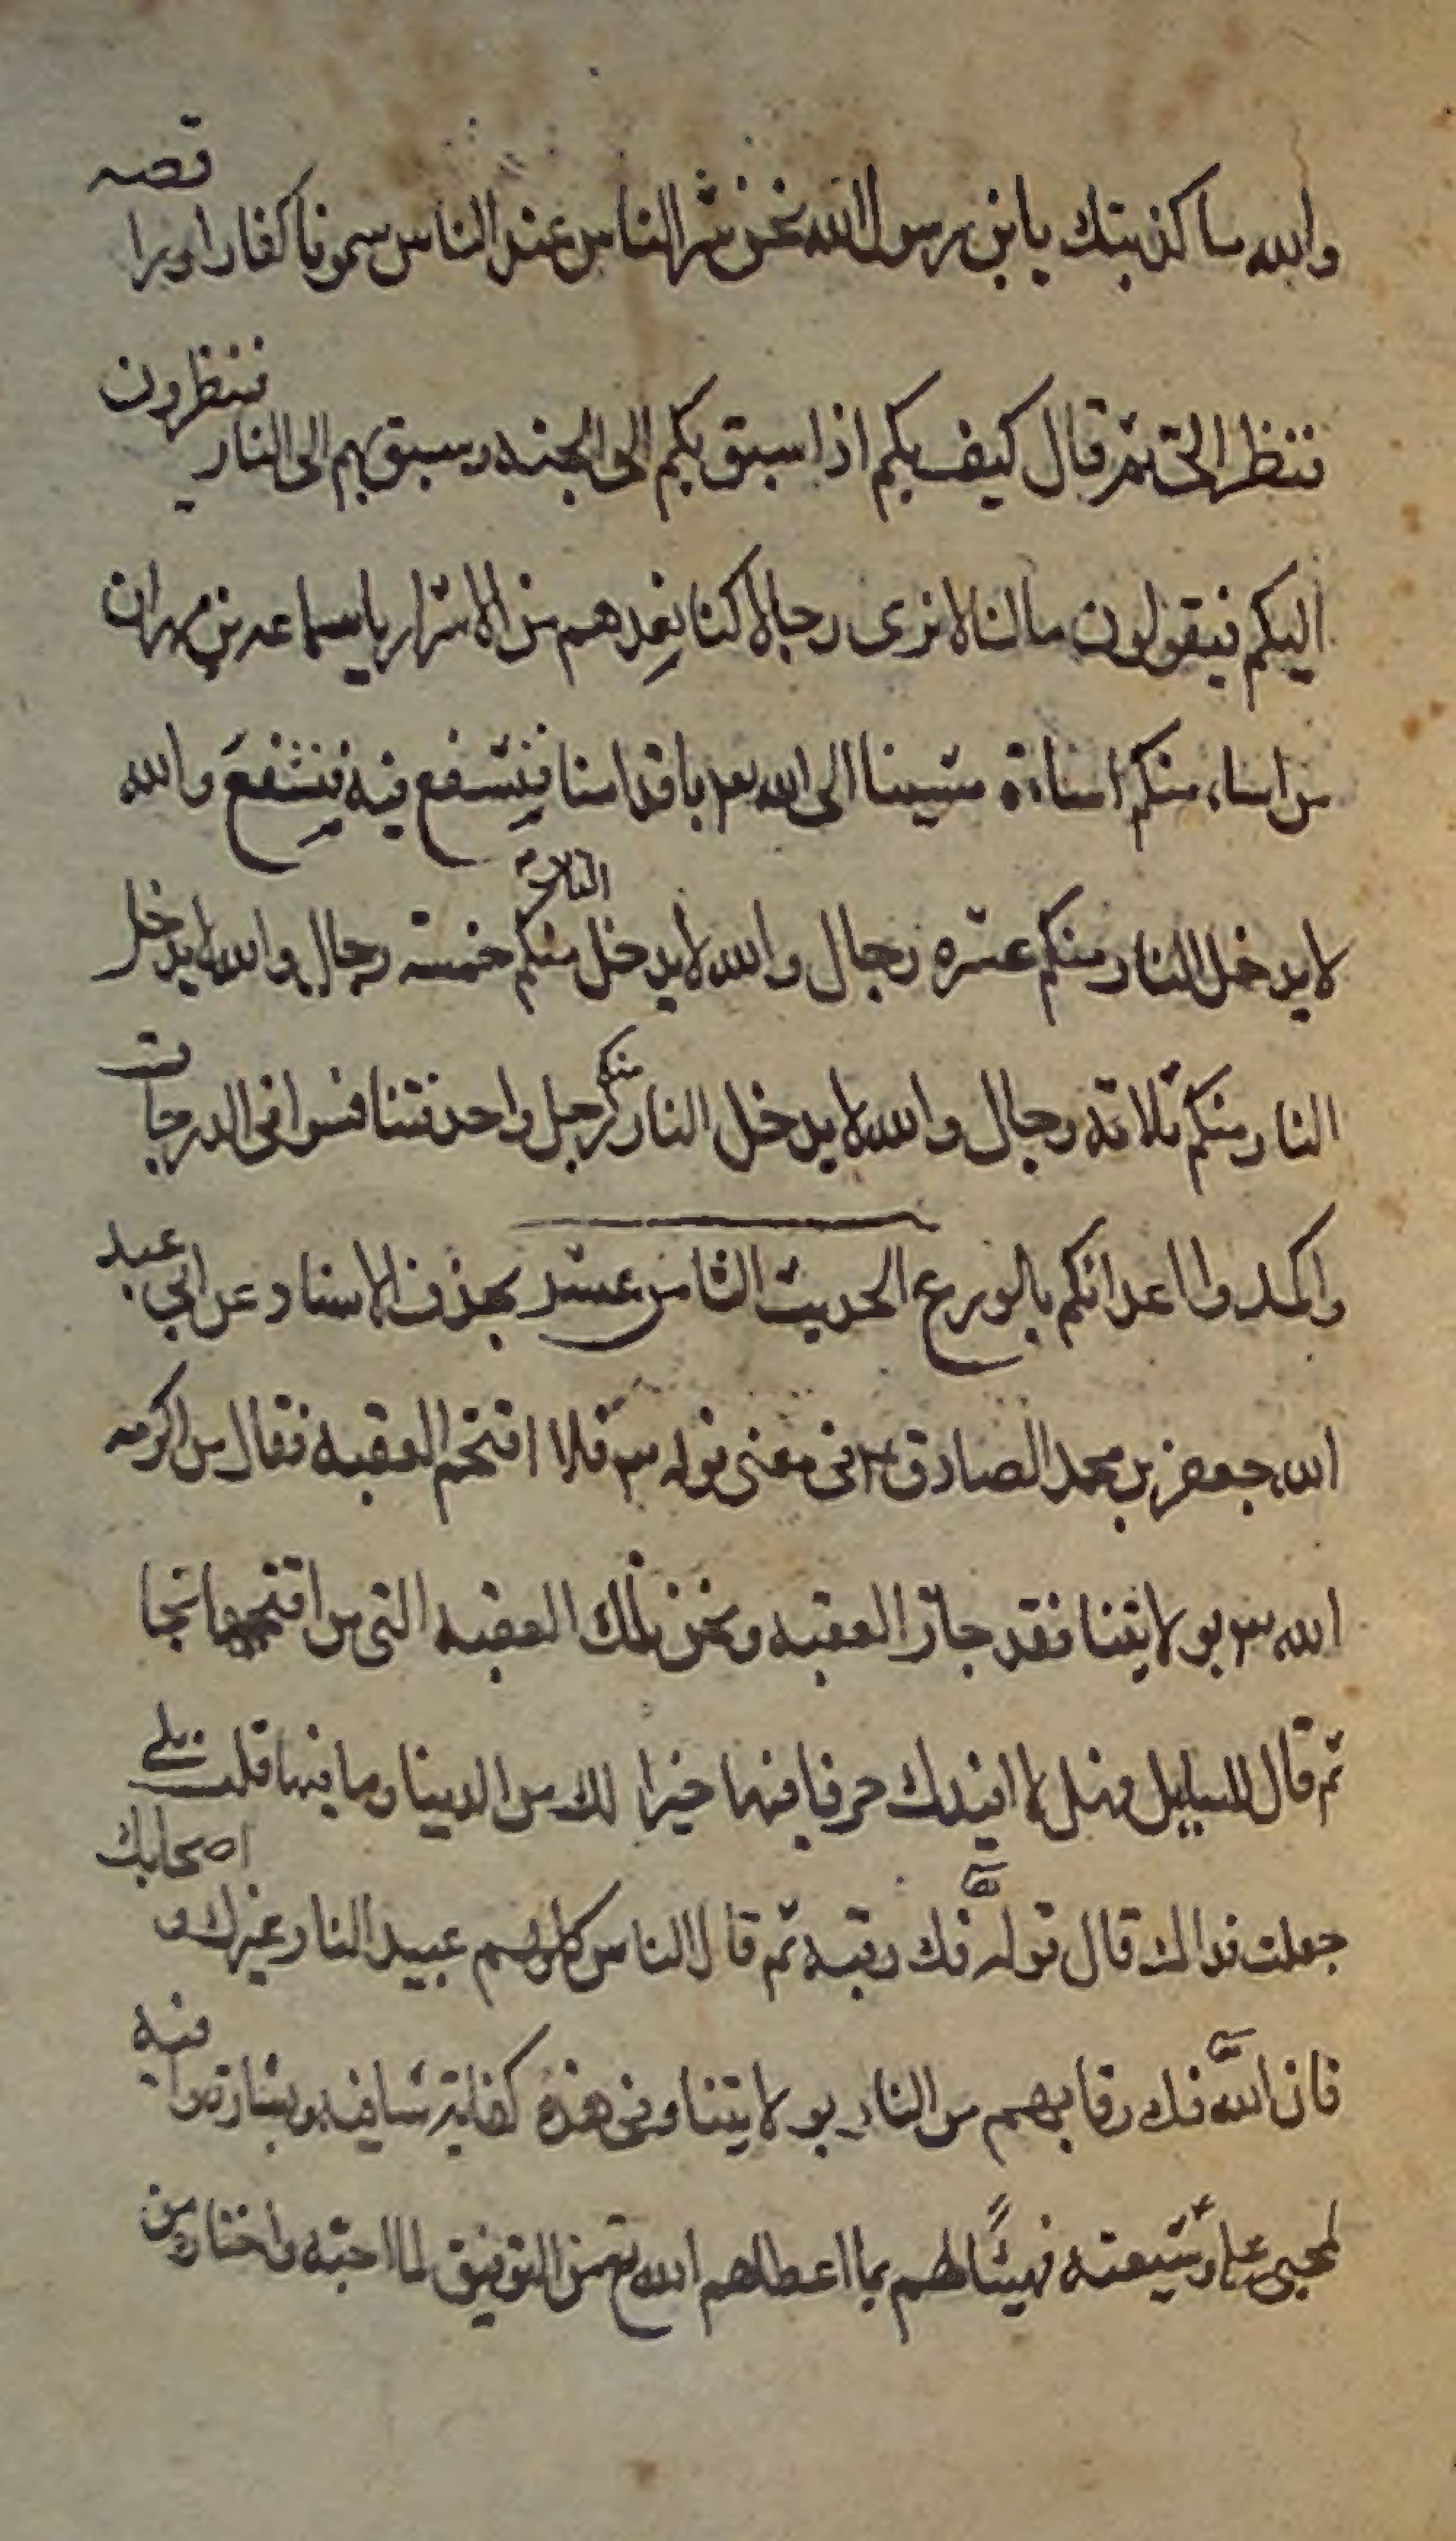 والله ما كذبتك يا بن رسول الله نحن شر الناس عند الناس سمونا كفارا ورا فضه
فنظر الى ثم قال كيف بكم اذا سيق بكم الى الجنه وسيق بهم الى النار فينظرون
اليكم فيقولون ما لنا لا نرى رجالا كنا نعدهم من الاشرار يا سماعه بن مهران
من اساء منكم اساءة مشينا الى الله باقدامنا فنشفع فيه فنشفع والله
لا يدخل النار منكم عشره رجال والله لا يدخل النار منكم خمسة رجال والله لا يدخل
النار منكم ثلاثه رجال والله لا يدخل النار منكم رجل واحد فتنافسوا فى الدرجات
واكمدوا اعدائكم بالورع الحديث الثامن عشر بحذف الاسناد عن ابي عبد
الله جعفر بن محمد الصادق فى معنى قوله فلا اقتحم العقبه فقال من اكرمه
الله بولايتنا فقد جاز العقبه ونحن تلك العقبه التى من اقتحمها نجا
ثم قال للسايل فهل لا افيدك حرفا فيها خيرا لك من الدينا وما فيها قلت بلى
جعلت فداك قال قوله فك رقبه ثم قال الناس كلهم عبيد النار غيرك و اصحابك
فان الله فك رقابهم من النار بولايتنا وفى هذه كفاية شافيه وبشارة وافيه
لمحبى على وشيعته فهيئا لهم بما اعطاهم الله من التوفيق لما احبه واختاره من